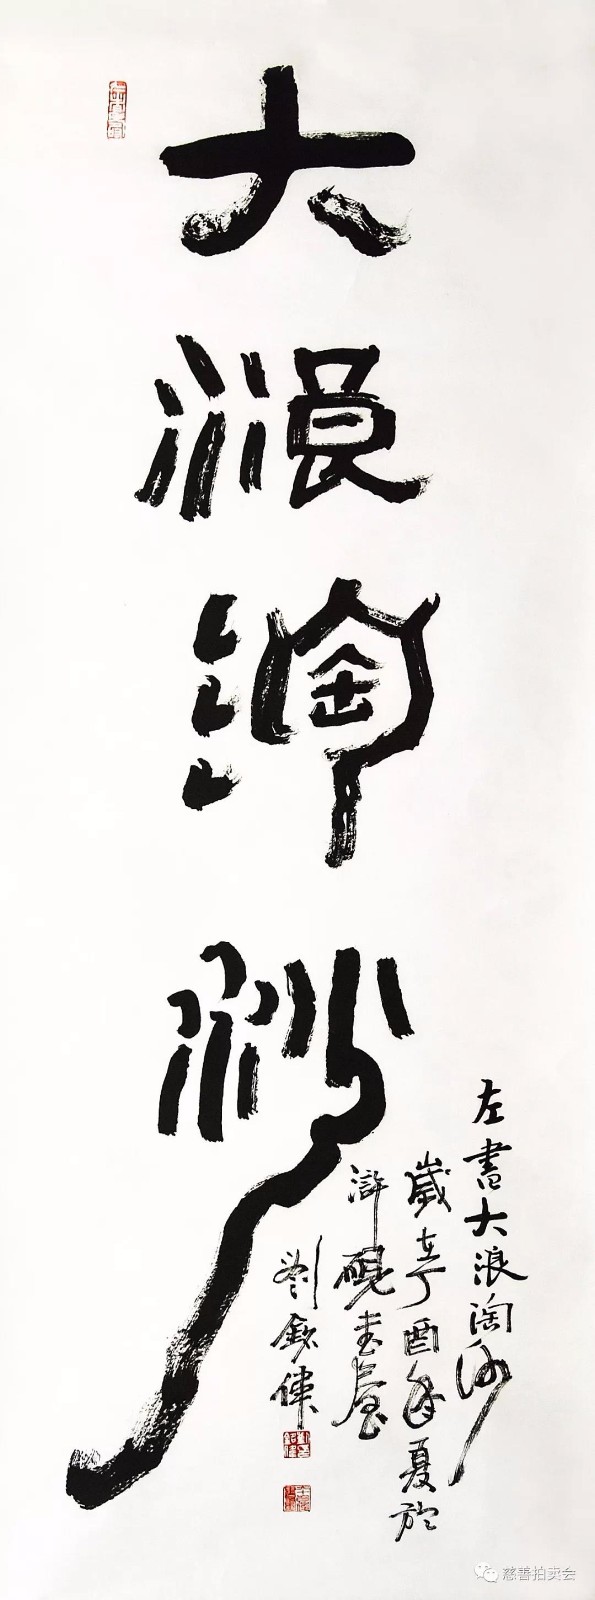 大浪淘沙
左書大浪淘沙
歲在丁酉年夏於
滸硯書屋
劉
慈善拍卖会